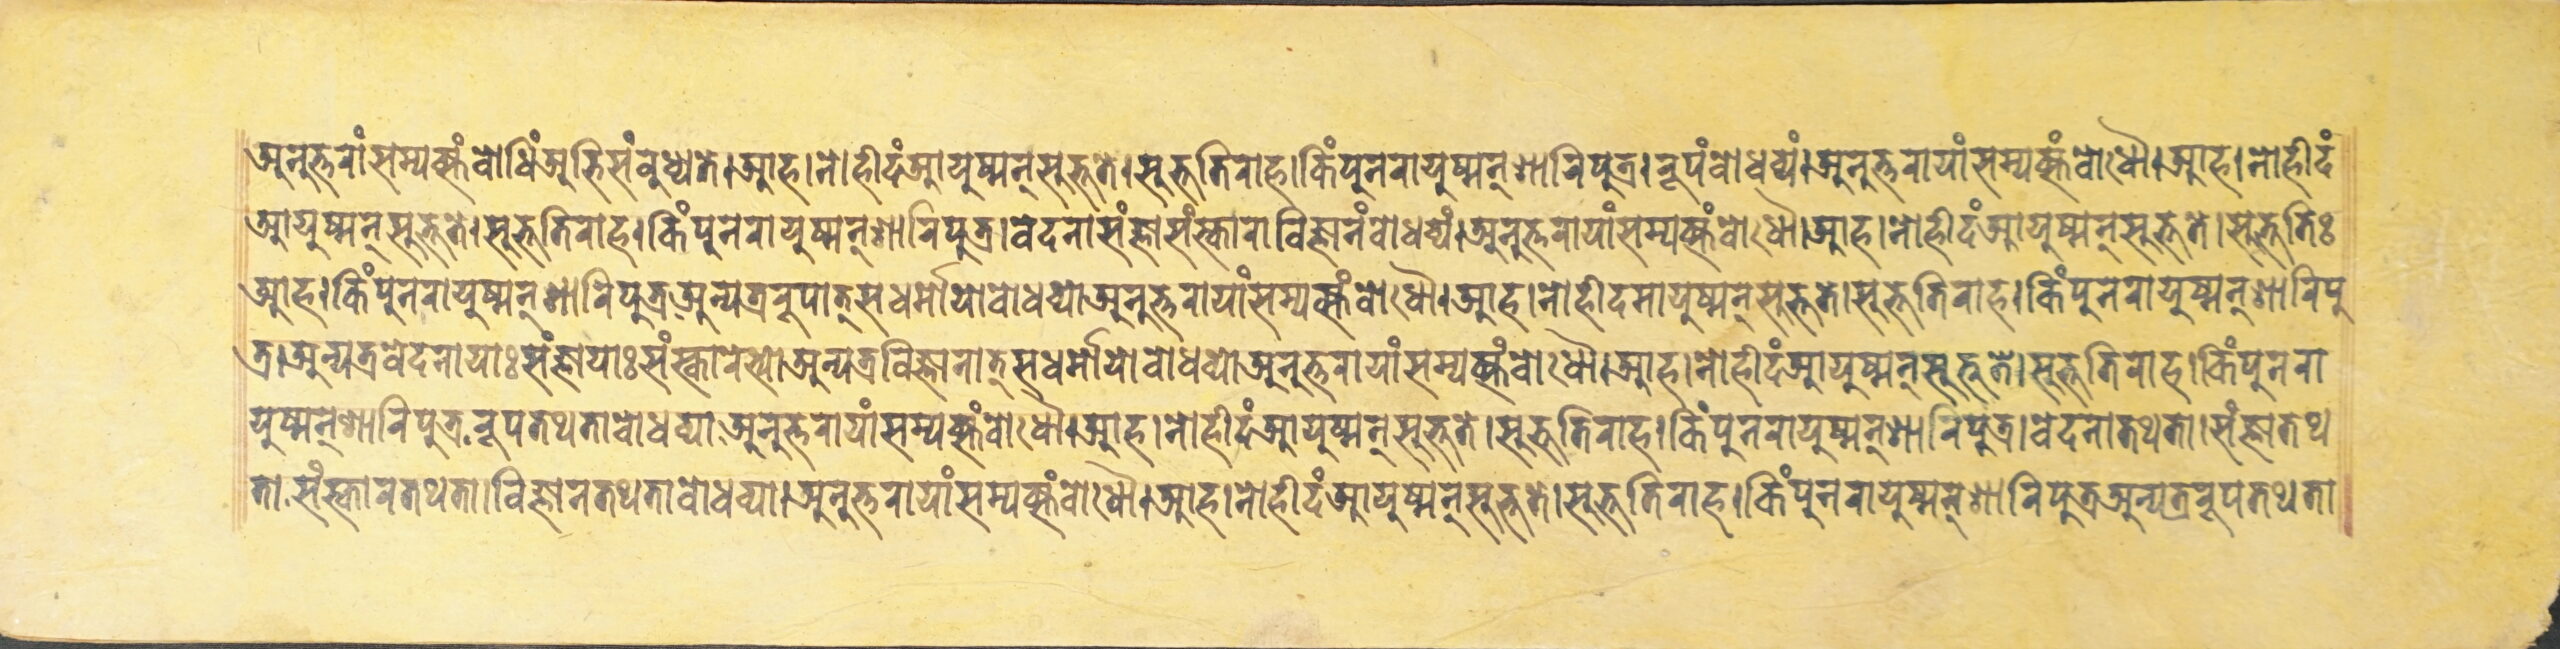 अनुत्तरांसम्यक्संबोधिंअभिसंबुध्यते।आह।नोहीदंआयुष्मन्सुभूते।सुभूतिराह।किंपुनरायुष्मन्शारिपुत्र।रूपंबोधव्यं।अनुत्तरायांसम्यक्संबोधौ।आह।नोहीदं
आयुष्मन्सुभूते।सुभूतिराह।किंपुनरायुष्मन्शारिपुत्र।वेदनासंज्ञासंस्काराविज्ञानंबोधव्यं।अनुत्तरायांसम्यक्संबोधौ।आह।नोहीदंआयुष्मन्सुभूते।सुभूतिः
आह।किंपुनरायुष्मन्शारिपुत्रअन्यत्ररूपात्सधर्मोयोबोधव्योअनुत्तरायांसम्यक्संबोधौ।आह।नोहीदमायुष्मन्सुभूते।सुभूतिराह।किंपुनरायुष्मन्शारिपु
त्र।अन्यत्रवेदनायाःसंज्ञायाःसंस्कारेभ्योअन्यत्रविज्ञानात्सधर्मोयोबोधव्योअनुत्तरायांसम्यक्संबोधौ।आह।नोहीदंआयुष्मन्सुभूते।सुभूतिराह।किंपुनरा
युष्मन्शारिपुत्ररूपतथताबोधव्याअनुत्तरायांसम्यक्संबोधौ।आह।नोहीदंआयुष्मन्सुभूते।सुभूतिराह।किंपुनरायुष्मन्शारिपुत्र।वेदनातथता।संज्ञातथ
तासंस्कारतथता।विज्ञानतथताबोधव्या।अनुत्तरायांसम्यक्संबोधौ।आह।नोहीदंआयुष्मन्सुभूते।सुभूतिराह।किंपुनरायुष्मन्शारिपुत्रअन्यत्ररूपतथता